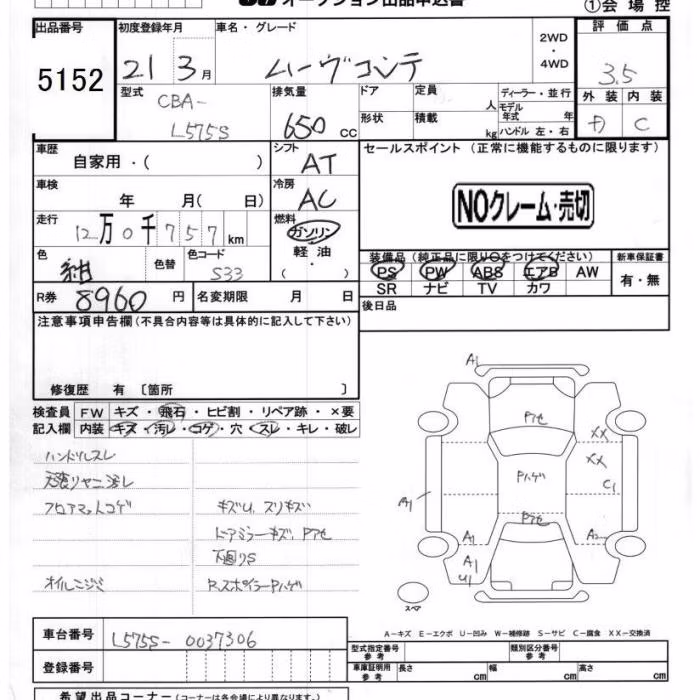 オークション出品申込書
①会場控
出品番号 5152
初度登録年月 21 3月
車名・グレード ムーヴコンテ
2WD・4WD
評価点 3.5
外装 内装 C
型式 CBA-L575S
排気量 650 cc
ドア 定員 人
形状 積載 kg
ディーラー・並行
モデル年式 年
ハンドル 左・右
車歴 自家用・( )
シフト AT
車検 年 月(日)
冷房 AC
走行 12万0千757km
燃料 ガソリン・軽油・( )
色 紺 色替 色コード S33
R券 8960円 名変期限 月 日
セールスポイント (正常に機能するものに限ります)
NOクレーム・売切
装備品 (純正品に限り○をつけてください) 新車保証書
PS PW ABS エアB AW 有・無
SR ナビ TV カワ
後日品
注意事項申告欄(不具合内容等は具体的に記入して下さい)
修復歴 有 〔箇所 〕
検査員 FW キズ・飛石・ヒビ割・リペア跡・×要
記入欄 内装 キズ・汚レ・コゲ・穴・スレ・キレ・破レ
ハンドルスレ
フロアマットコゲ キズU、スリキズ
ドアミラーキズ、Pアセ
下廻りS
オイルニジミ R.スポイラーPハゲ
A1
Pアセ
XX
XX
Pハゲ
C1
A1
Pアセ
A1 A2
A1
U1
スペア
A-キズ E-エクボ U-凹み W-補修跡 S-サビ C-腐食 XX-交換済
車台番号 L575S-0037306
型式指定番号 参考 類別区分番号 参考
登録番号
車庫証明用 参考 長さ cm 幅 cm 高さ cm
希望出品コーナー (コーナーは各会場により異なります。)